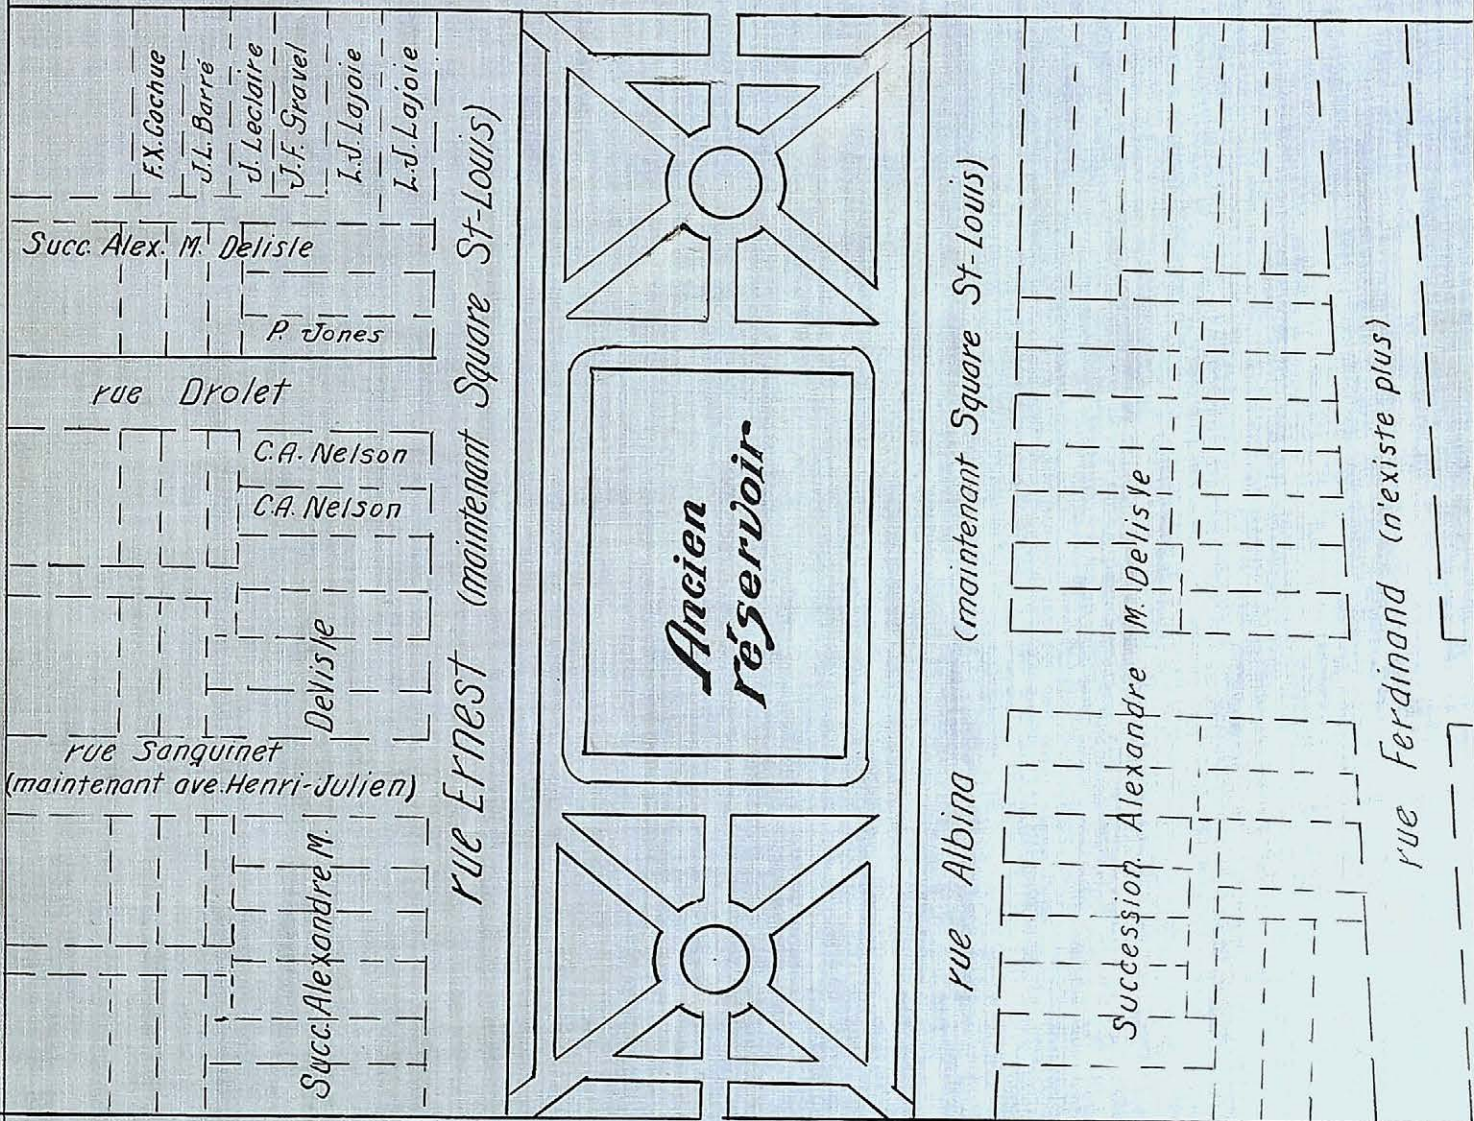 F.X. Cochue
J.L. Barré
J. Leclaire
J.F. Gravel
L.J. Lajoie
L.J. Lajoie
Succ. Alex. M. Delisle
P. Jones
rue Drolet
C.A. Nelson
C.A. Nelson
Succ. Alexandre M. Delisle
rue Sanguinet
(maintenant ave. Henri-Julien)
rue Ernest (maintenant Square St-Louis)
Ancien
réservoir
rue Albina (maintenant Square St-Louis)
Succession Alexandre M. Delisle
rue Ferdinand (n'existe plus)